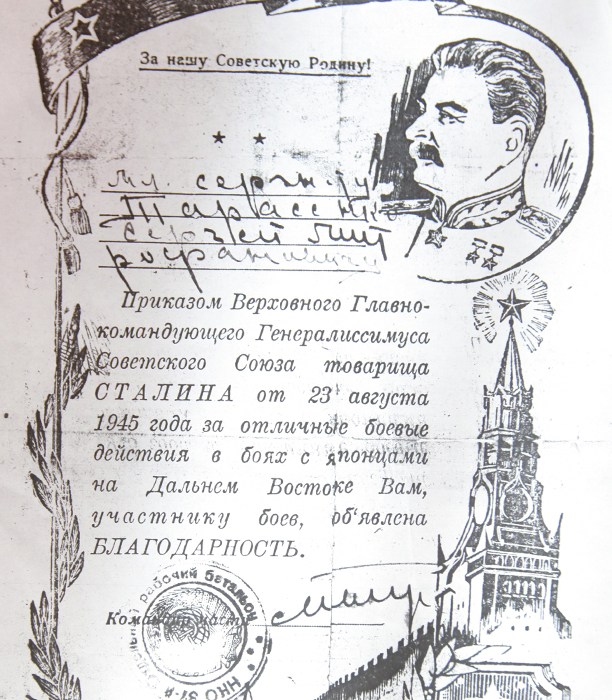 За нашу Советскую Родину!
мл. сержанту
Тарасенко
Сергей Мит
рофанович
Приказом Верховного Главно-
командующего Генералиссимуса
Советского Союза товарища
СТАЛИНА от 23 августа
1945 года за отличные боевые
действия в боях с японцами
на Дальнем Востоке Вам,
участнику боев, об'явлена
БЛАГОДАРНОСТЬ.
Командир части
Рабочий батальон
ННО 31-й